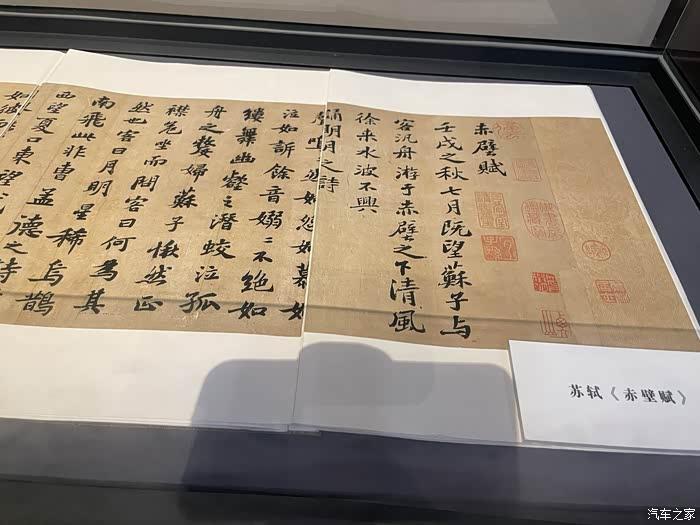 赤壁賦
壬戌之秋七月既望蘇子与
客汎舟游于赤壁之下清風
徐来水波不興
誦明月之詩
如怨如慕如
泣如訴餘音嫋〻不絶如
縷舞幽壑之潜蛟泣孤
舟之嫠婦蘇子愀然正
襟危坐而問客曰何為其
然也客曰月明星稀烏鵲
南飛此非曹孟德之詩
西望夏口東望
苏轼《赤壁赋》
汽车之家